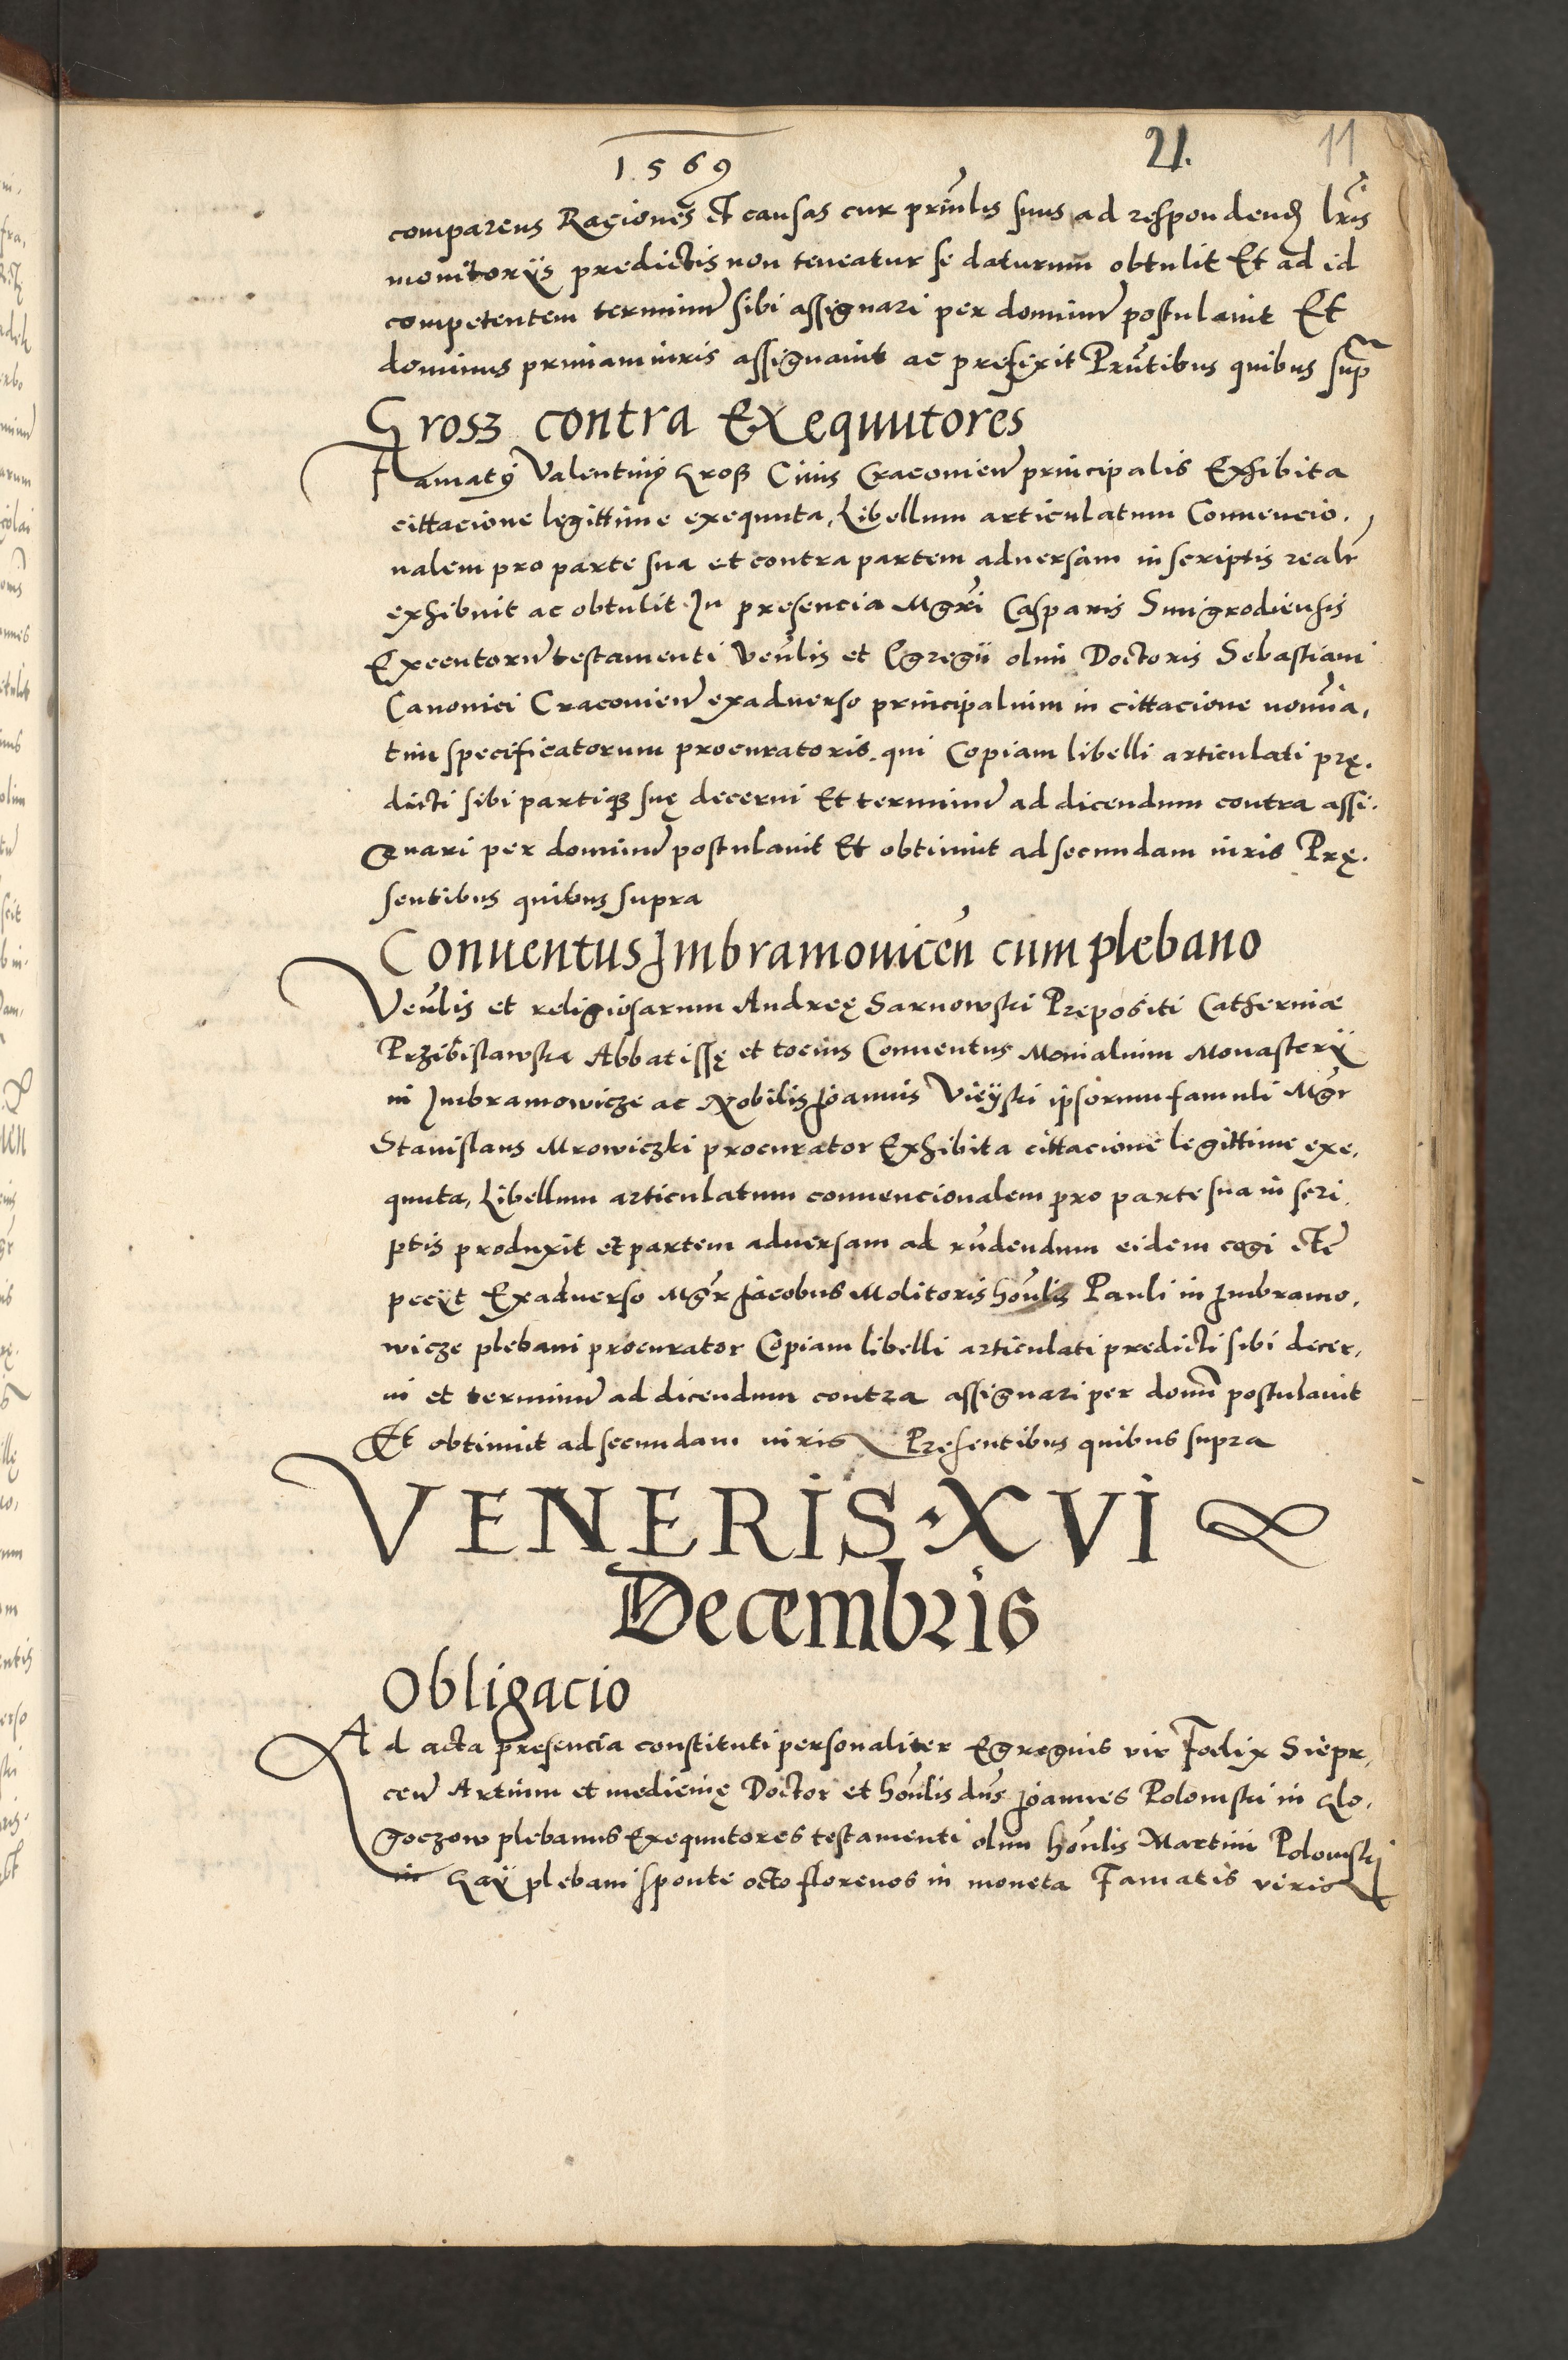 1569
21.
11
comparens Raciones et causas cur prĩnlis suus ad respondend lr̃is
monitorijs predictis non teneatur se daturum obtulit Et ad id
competentem terminũ sibi assignari per dominũ postulavit Et
dominus primam iuris assignavit ac prefixit Prñtibus quibus sup
Grosz contra Exequutores
Famatꝰ Valentinꝰ Groß Civis Cracovieñ principalis Exhibita
cittacione legittime exequuta, Libellum articulatum Convencio.
nalem pro parte sua et contra partem adversam in scriptis realr
exhibuit ac obtulit. In presencia Mgr̃i Casparis Smigrodiensis
Executorũ testamenti Veñlis et Egregii olim Doctoris Sebastiani
Canonici Cracovieñ exadverso principalium in cittacione nom̃a,
tim specificatorum procuratoris. qui Copiam libelli articulati prę.
dicti sibi partiqꝫ suę decerni Et terminũ ad dicendum contra assi.
gnari per dominũ postulavit Et obtinuit ad secundam iuris Prę.
sentibus quibus supra
Conventus Imbramovicen̄ cum plebano
Veñlis et religiosarum Andreę Sarnowski Prepositi Catherinæ
Przibislawska Abbatissę et tocius Conventus Monialium Monasterij
in Imbramowicze ac Nobilis Joannis Vieyski ipsorum famuli Mgr
Stanislaus Mrowiczki procurator Exhibita cittacione legittime exe,
quuta, Libellum articulatum convencionalem pro parte sua in scri.
ptis produxit et partem adversam ad rñdendum eidem cogi etc̃
pecijt Exadverso Mgr̃ Jacobus Molitoris hoñlis Pauli in Imbramo,
wicze plebani procurator Copiam libelli articulati predicti sibi decer,
ni et terminũ ad dicendum contra assignari per domñ postulavit
Et obtinuit ad secundam iuris Presentibus quibus supra
VENERIS·XVI
Decembris
Obligacio
Ad acta presencia constituti personaliter Egregius vir Foelix Sierp,
ceñ Artium et medicinę Doctor et hoñlis dñs Joannes Polomski in Glo,
goczow plebanus Exequutores testamenti olim hoñlis Martini Polomski
in Gay plebani sponte octo florenos in moneta Famatis viris